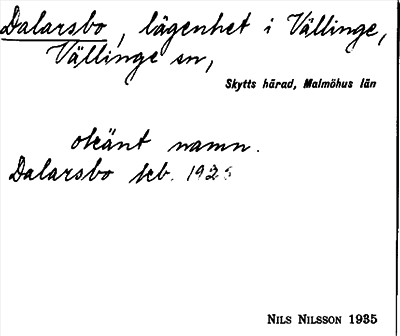 Dalarsbo, lägenhet i Vällinge,
Vällinge sn,
Skytts härad, Malmöhus län
okänt namn.
Dalarsbo feb.
NILS NILSSON 1935